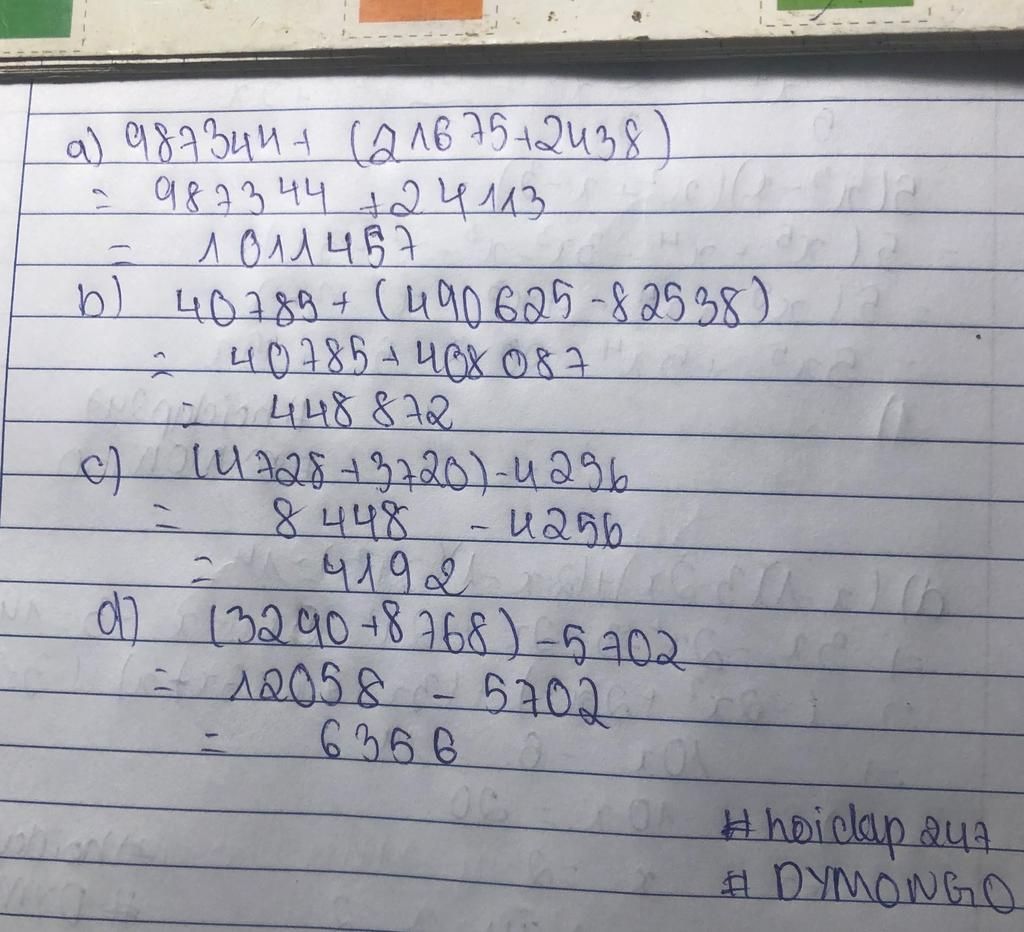 a) 987344+ (21675+2438)
= 987344 +24113
= 1011457
b) 40785+(490625-82538)
= 40785+408087
= 448872
c) (4728+3720)-4256
= 8448 -4256
= 4192
d) (3290+8768)-5702
= 12058 - 5702
= 6356
#hoidap247
# DYMONGO